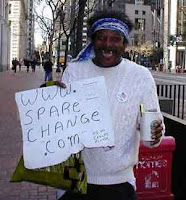 www.
SPARE
CHANGE
.COM